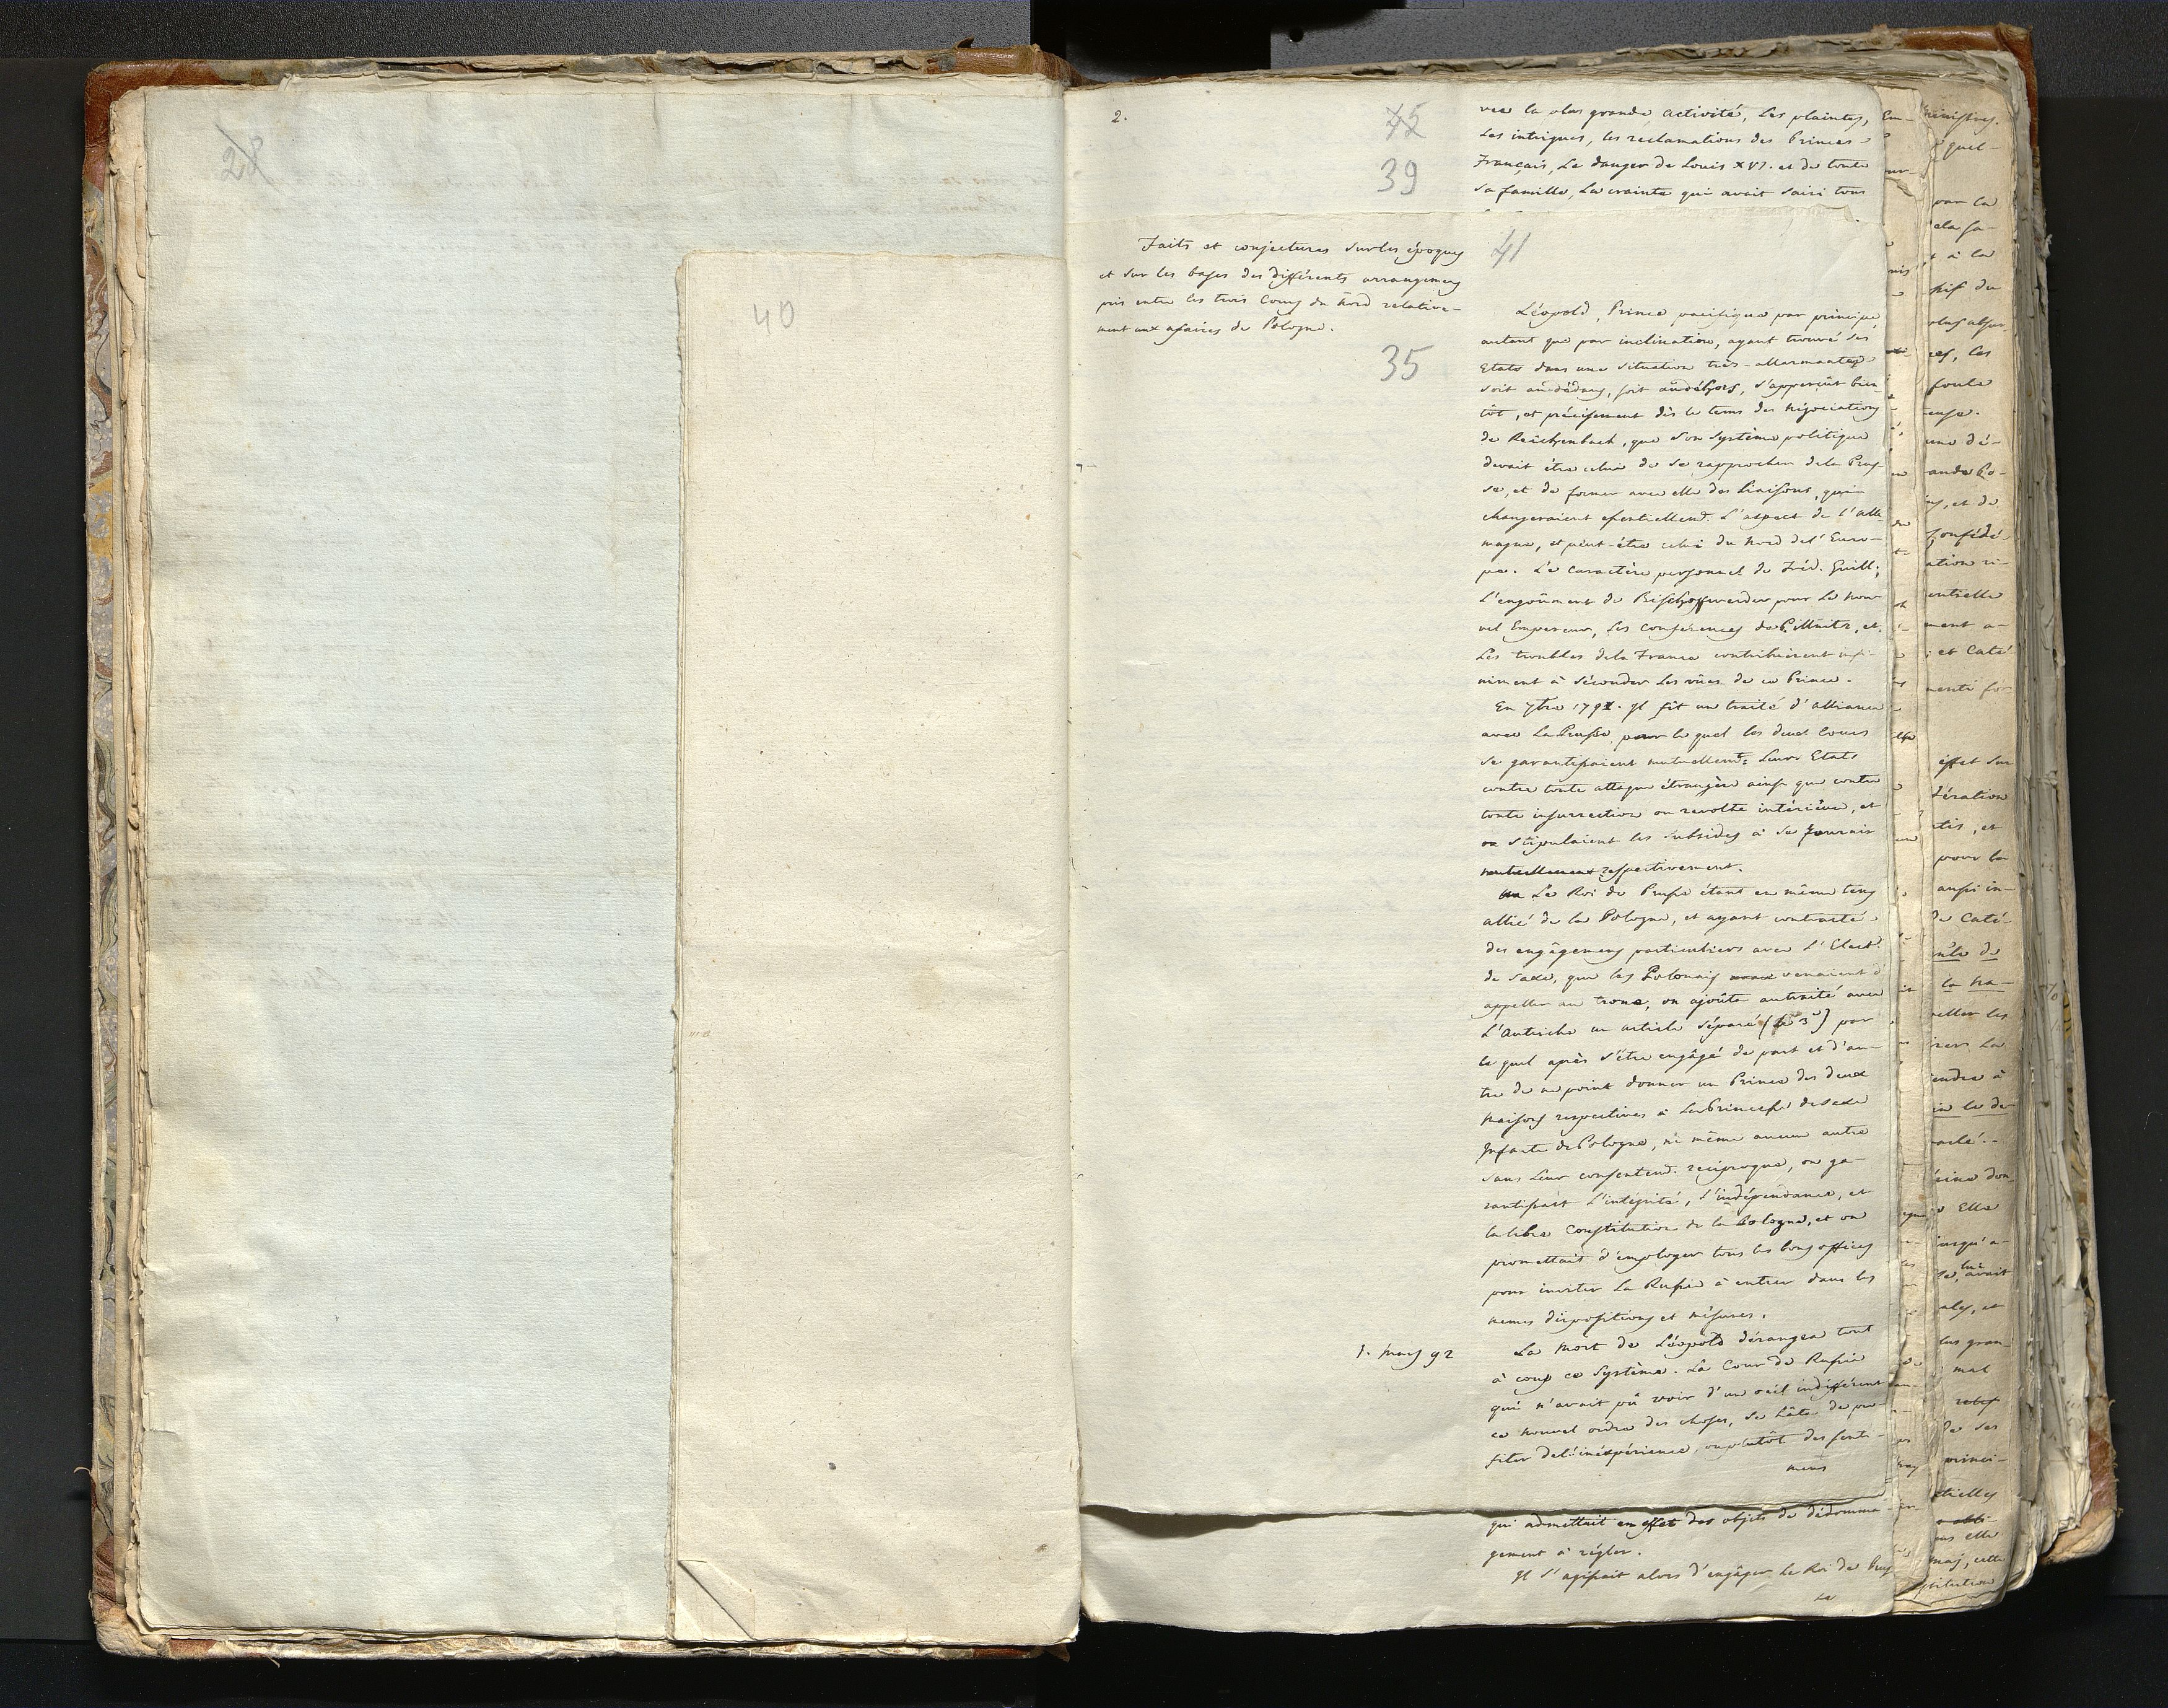 28
40
2.
45
39
vec la plus grande activité, Les plaintes,
Les intrigues, les reclamations des Princes
Français, Le danger de Louis XVI. et de toute
sa famille, La crainte qui avait saisi tous
Faits et conjectures sur les époques
et sur les bases des différents arrangemens
pris entre les trois Cours du Nord relative-
ment aux afaires de Pologne.
35
41
Léopold, Prince pacifique par principe
autant que par inclination, ayant trouvé ses
Etats dans une situation très-allarmante
soit au-dédans, soit au déhors, s'apperçût bien
tôt, et précisement dès le tems des négociations
de Reichenbach, que son Système politique
devait être celui de se rapprocher dela Prus-
se, et de former avec elle des liaisons, qui
changeraient essentiellemt. L'aspect de l'Alle
magne, et peut-être celui du Nord de l'Euro-
pe. Le Caractère personnel de Fréd. Guill;
L'engoûment de Bischoffwerder pour Le nou
vel Empereur, Les Conférences de Pillnitz, et
Les troubles dela France contribuèrent infi
niment à séconder Les vûes de ce Prince.
En 7bre 1791. Il fit un traité d'alliance
avec La Prusse par le quel les deux Cours
se garantissaient mutuellemt. Leurs Etats
contre toute attaque étrangère ainsi que contre
toute insurrection ou revolte intérieure, et
se stipulaient les subsides à se fournir
mutuellement respectivement.
Le Roi de Prusse étant en même tems
allié de la Pologne, et ayant contracté
des engâgemens particuliers avec L'Elect.
de Saxe, que les Polonais venaient d'
appeller au trone, on ajoûta au traité avec
L'Autriche un article séparé (le 3e) par
le quel après s'être engâgé de part et d'au-
tre de ne point donner un Prince des deux
Maisons respectives à La Princesse de Saxe
Infante de Pologne, ni même aucun autre
sans Leur consentemt. reciproque, on ga-
rantissait L'intégrité, L'indépendance, et
la libre Constitution de la Pologne, et on
promettait d'employer tous les bons offices
pour inviter La Russie à entrer dans les
memes dispositions et mésures.
1. Mars 92
La Mort de Léopold dérangea tout
à coup ce Système. La Cour de Russie
qui n'avait pû voir d'un oeil indifférent
ce nouvel ordre des choses, se hâta de pro-
fiter de l'inéxpérience, ou plutôt des senti-
mens
qui admettait en effet des objets de dédomma
gement à régler.
Il s'agissait alors d'engâger Le Roi de Prus
se
ministres.
quel-
par la
à la
foule
une dé-
et de
ment a-
et Caté
effet sur
dération
pour la
aussi in-
de Caté-
la na-
endre à
Elle
jusqu'a-
lui avait
mal
de ses
princi-
elle
cette